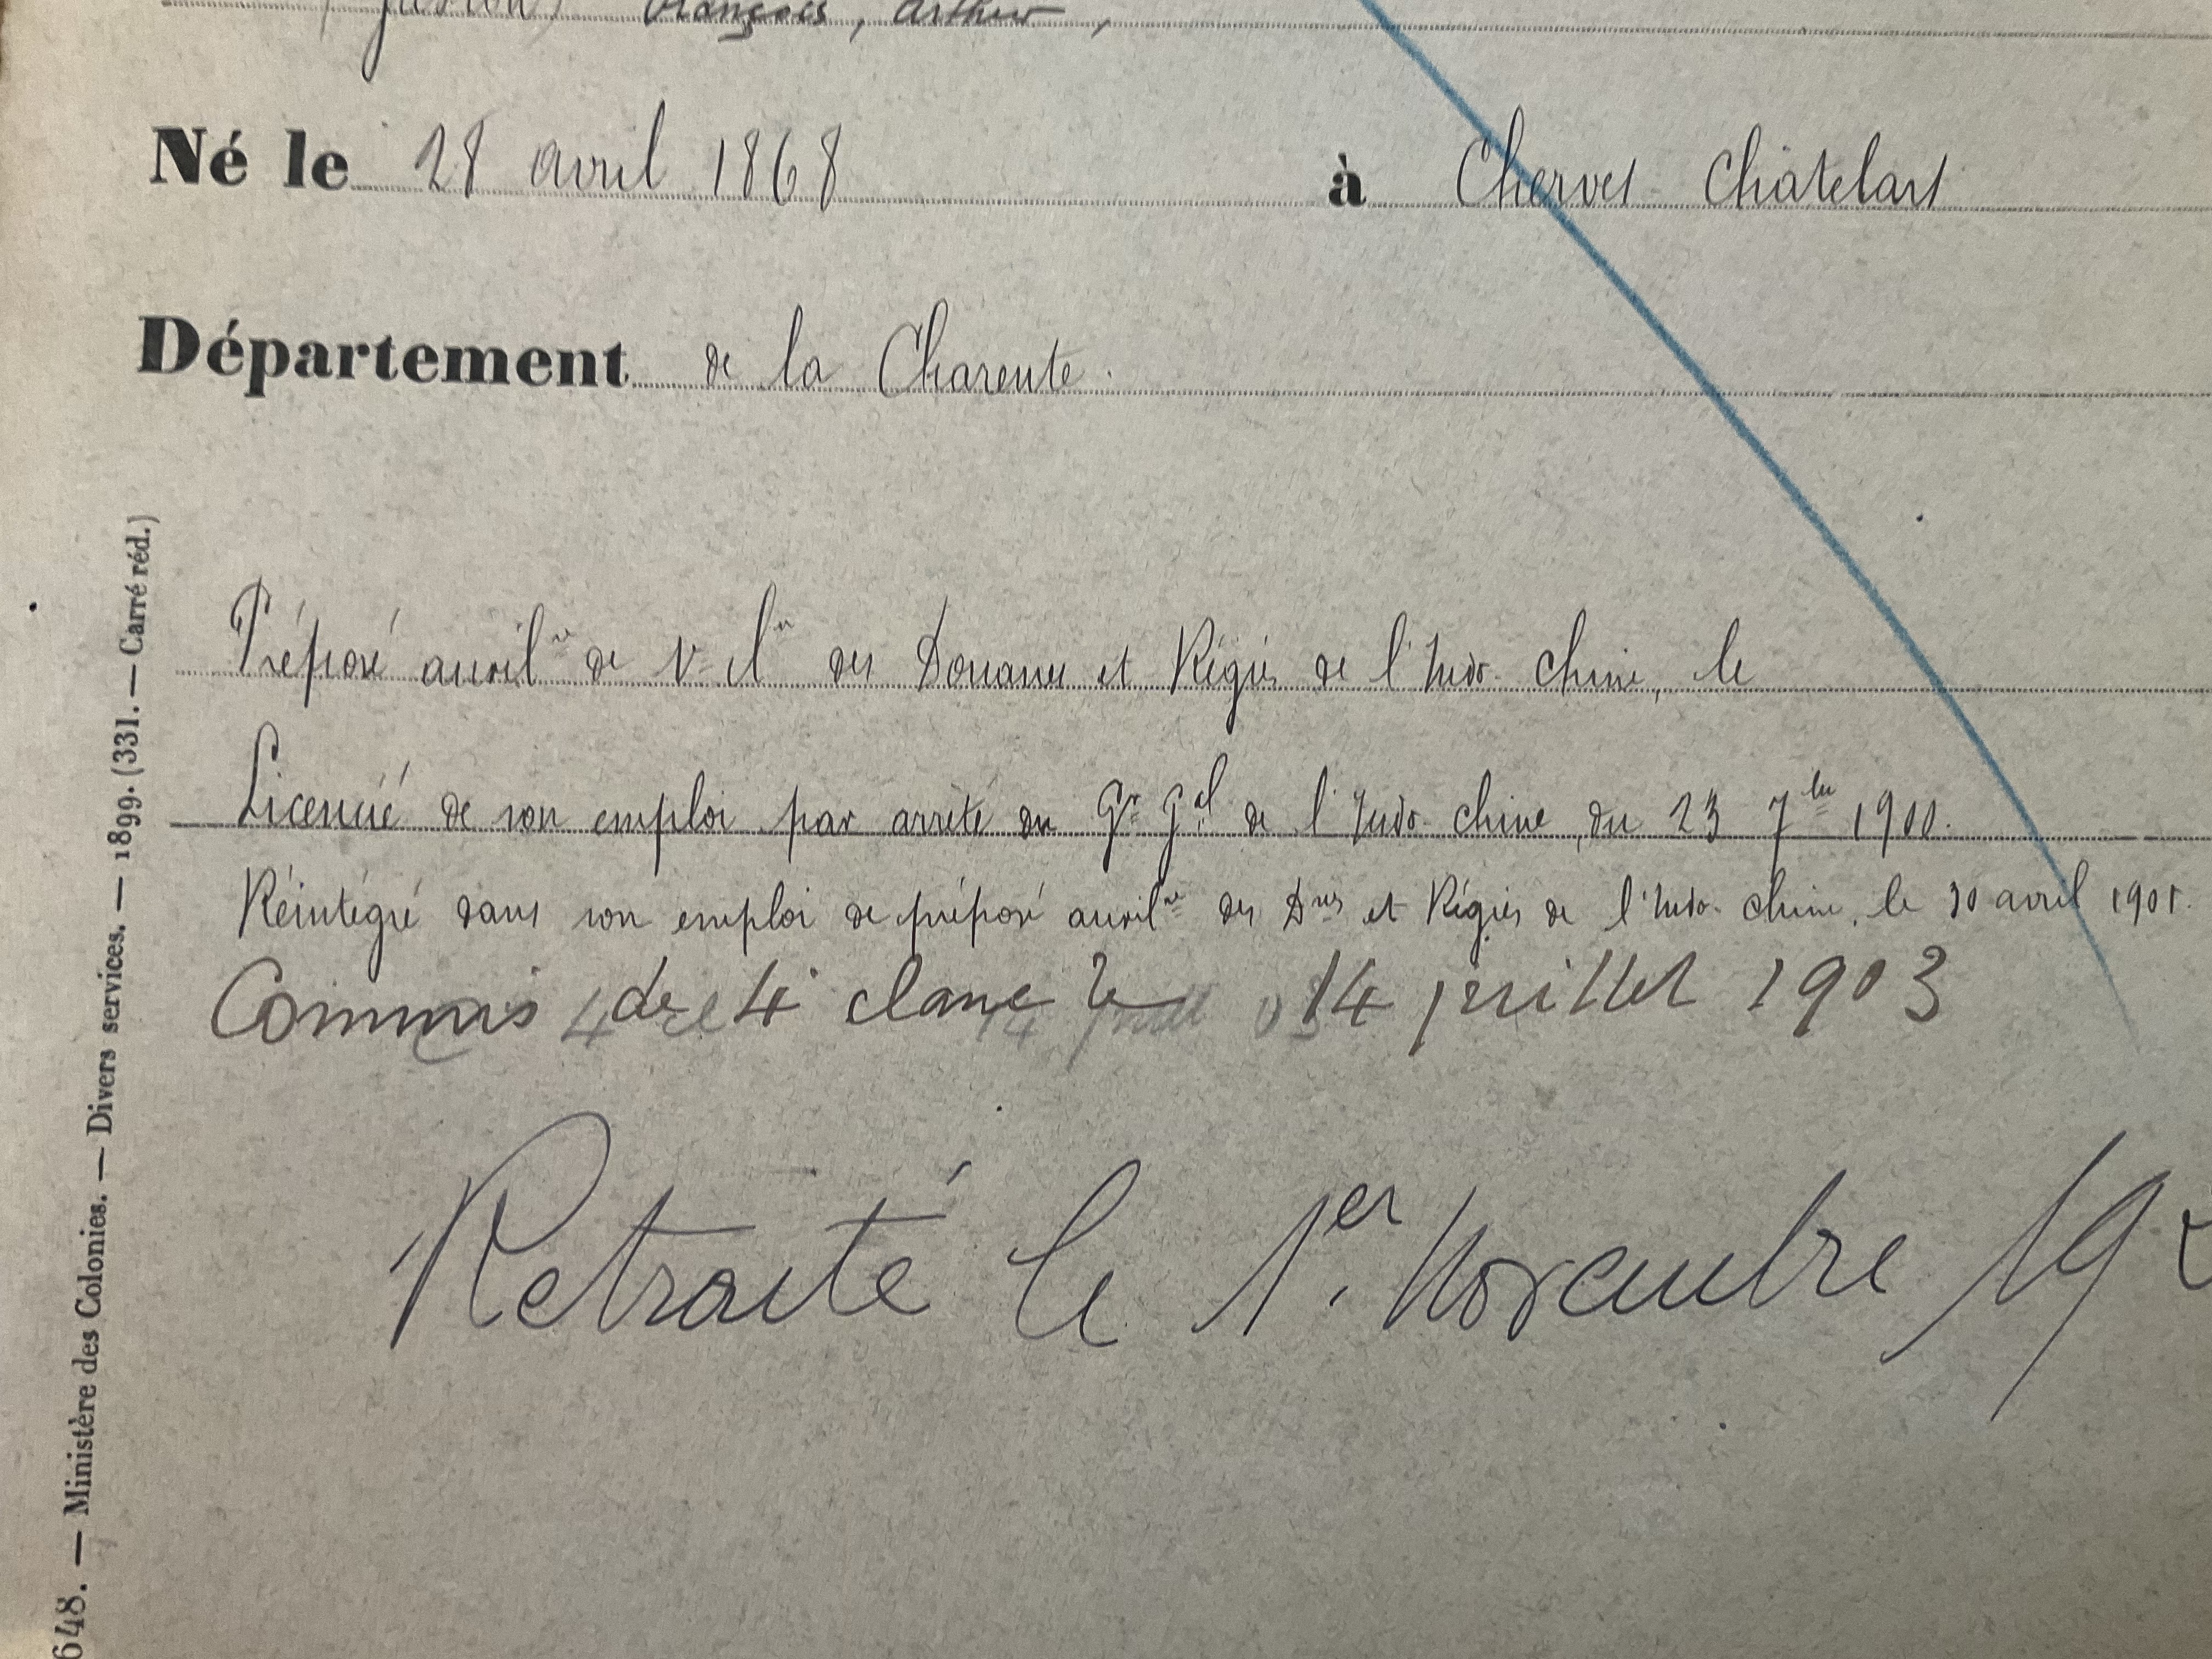 (Gaston) François, Arthur,
Né le 28 avril 1868 à Cherves Châtelars
Département de la Charente.
Préposé auxilre de 1e Cln des Douanes et Régies de l'Indo-Chine, le
Licencié de son emploi par arrêté du Gr Gal de l'Indo-Chine, du 23 7bre 1900.
Réintégré dans son emploi de préposé auxilre des Dnes et Régies de l'Indo-Chine, le 30 avril 1901.
Commis de 4e classe le 14 juillet 1903
Retraité le 1er Novembre 19
648. — Ministère des Colonies. — Divers services. — 1899. (331. — Carré réd.)